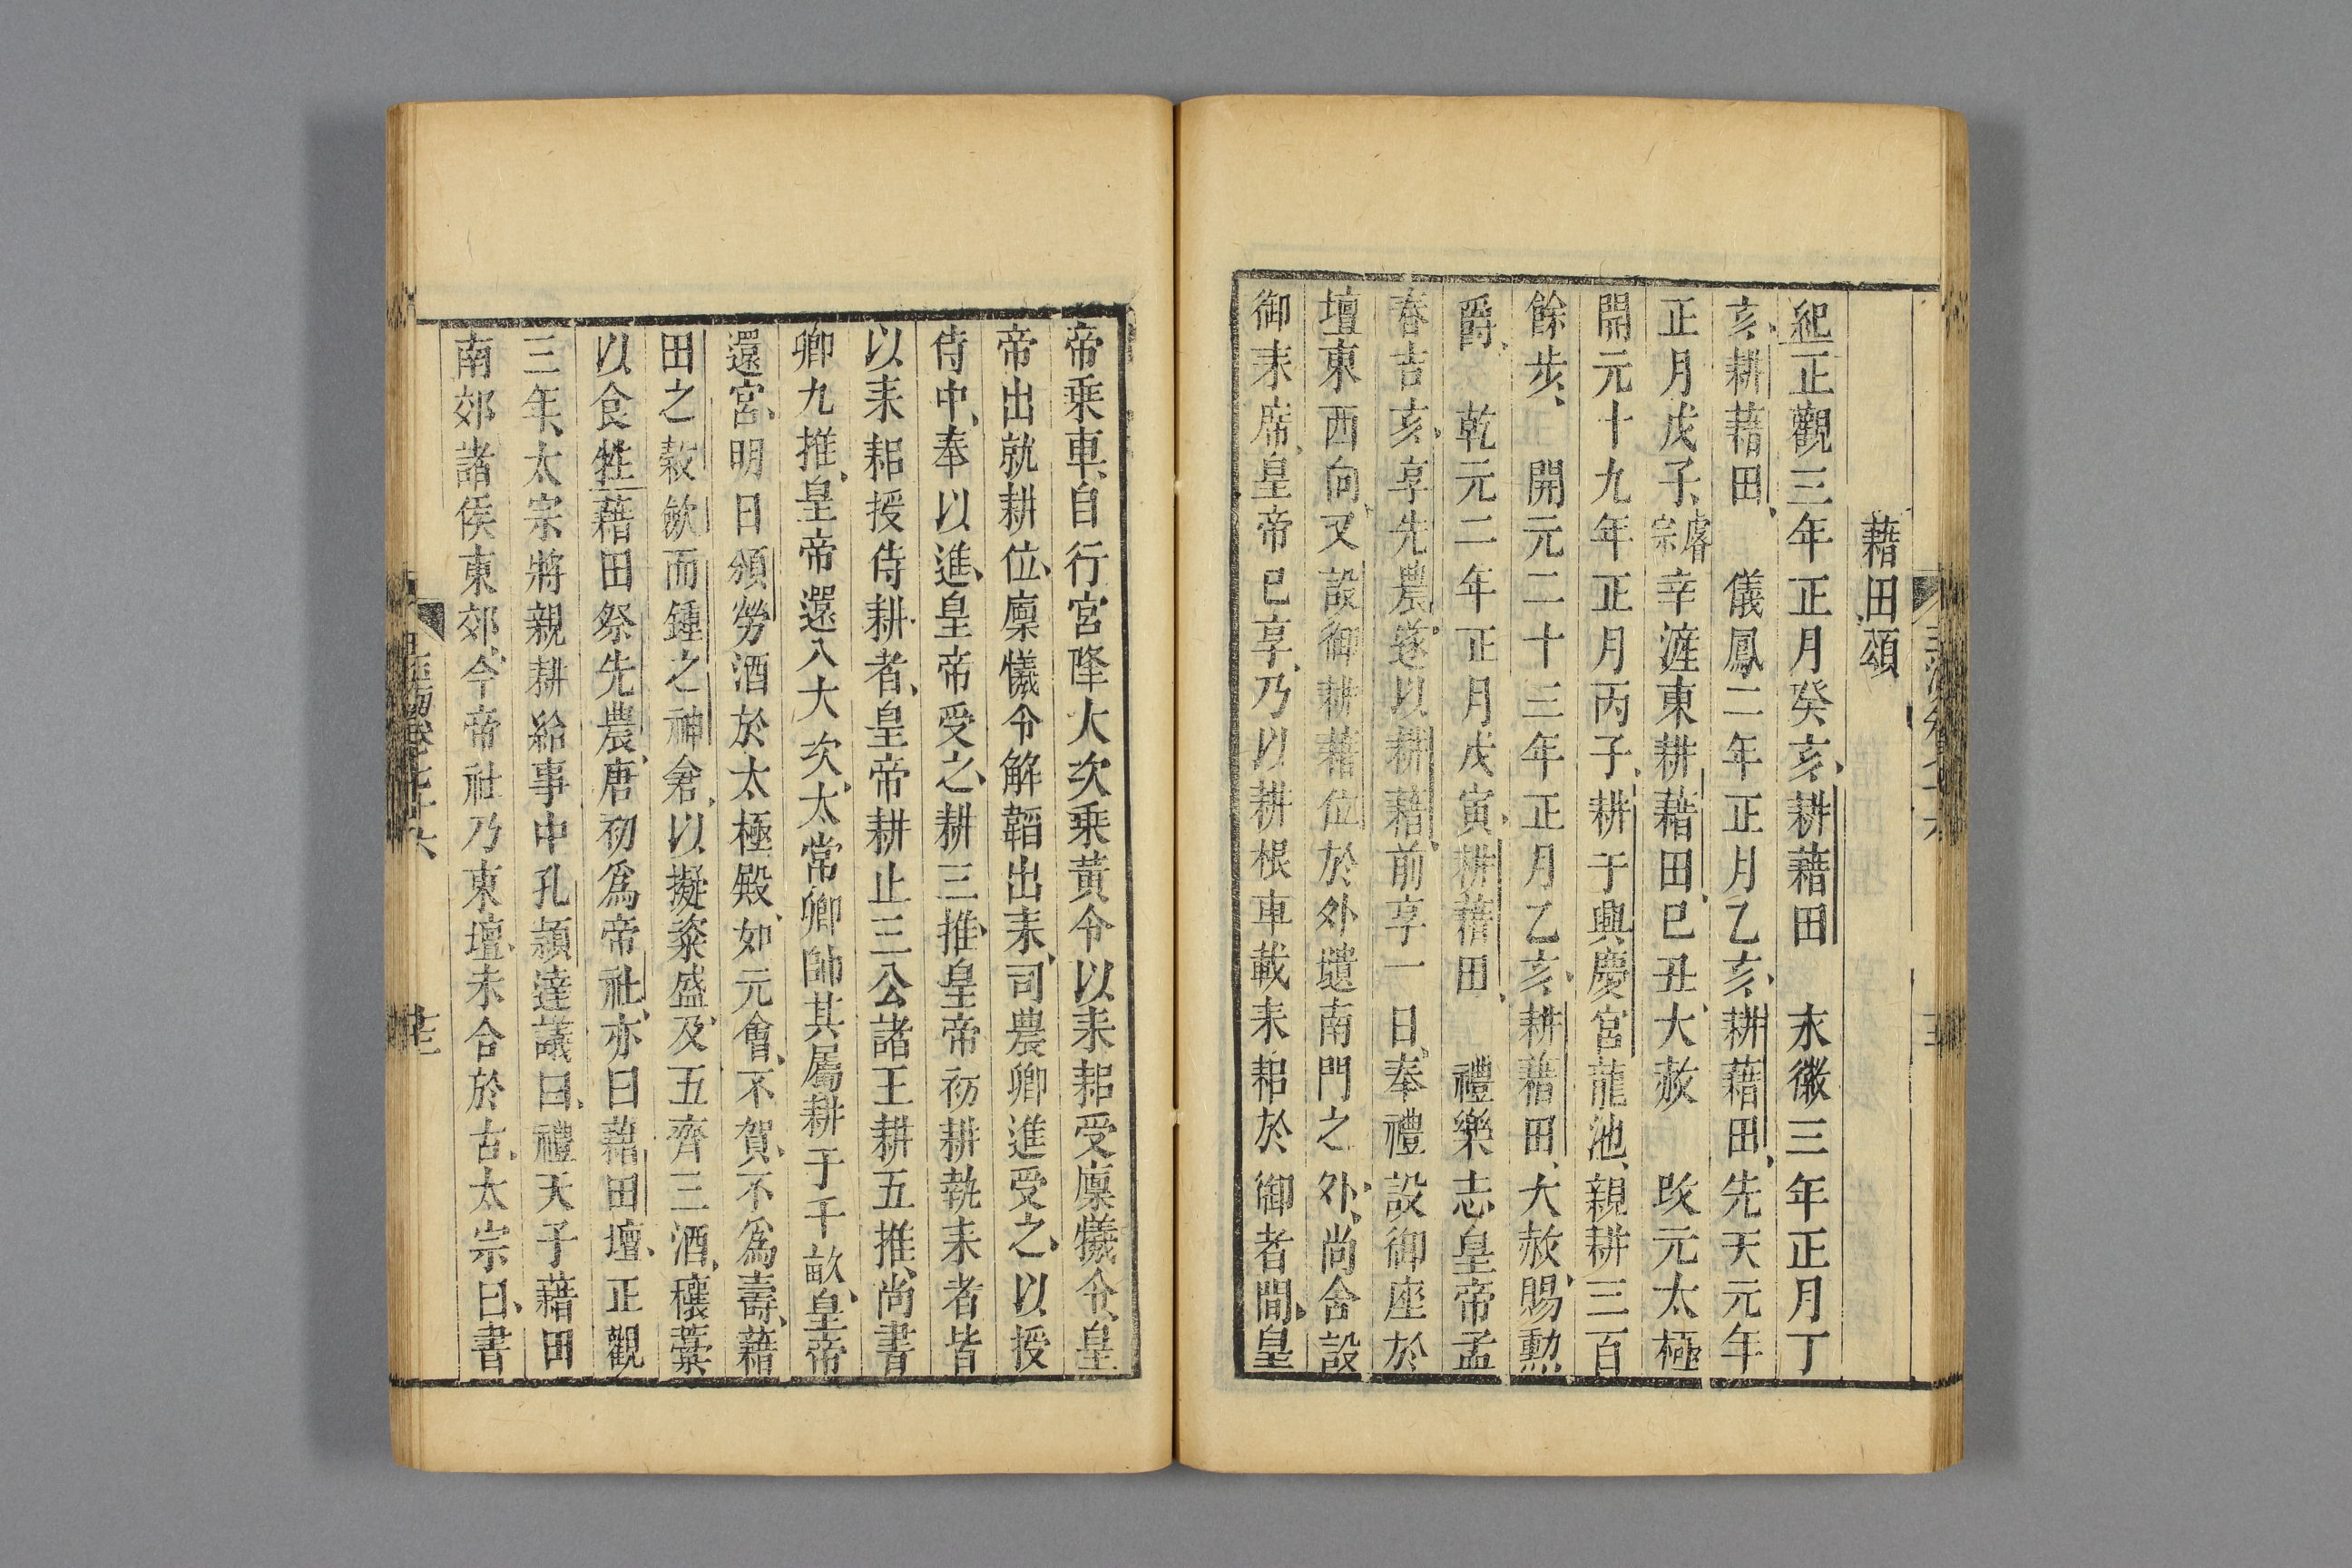 藉田頌
紀正觀三年正月癸亥耕藉田　永徽三年正月丁
亥耕藉田　儀鳳二年正月乙亥耕藉田先天元年
正月戊子睿宗幸滻東耕藉田己丑大赦　改元太極
開元十九年正月丙子耕于興慶宮龍池親耕三百
餘步　開元二十三年正月乙亥耕藉田大赦賜勲
爵　乾元二年正月戊寅耕藉田　禮樂志皇帝孟
春吉亥享先農遂以耕藉前享一日奉禮設御座於
壇東西向又設御耕藉位於外壝南門之外尚舍設
御耒席皇帝已享乃以耕根車載耒耜於御者間皇
帝乗車自行宮降大次乗黃令以耒耜受廩犧令皇
帝出就耕位廩犧令解韜出耒司農卿進受之以授
侍中奉以進皇帝受之耕三推皇帝初耕執耒者皆
以耒耜授侍耕者皇帝耕止三公諸王耕五推尚書
卿九推皇帝還入大次太常卿帥其屬耕于千畝皇帝
還宮明日頒勞酒於太極殿如元會不賀不為壽藉
田之穀斂而鍾之神倉以擬粢盛及五齊三酒穰藁
以食牲藉田祭先農唐初為帝社亦曰藉田壇正觀
三年太宗將親耕給事中孔穎達議曰禮天子藉田
南郊諸侯東郊今帝社乃東壇未合於古太宗曰書